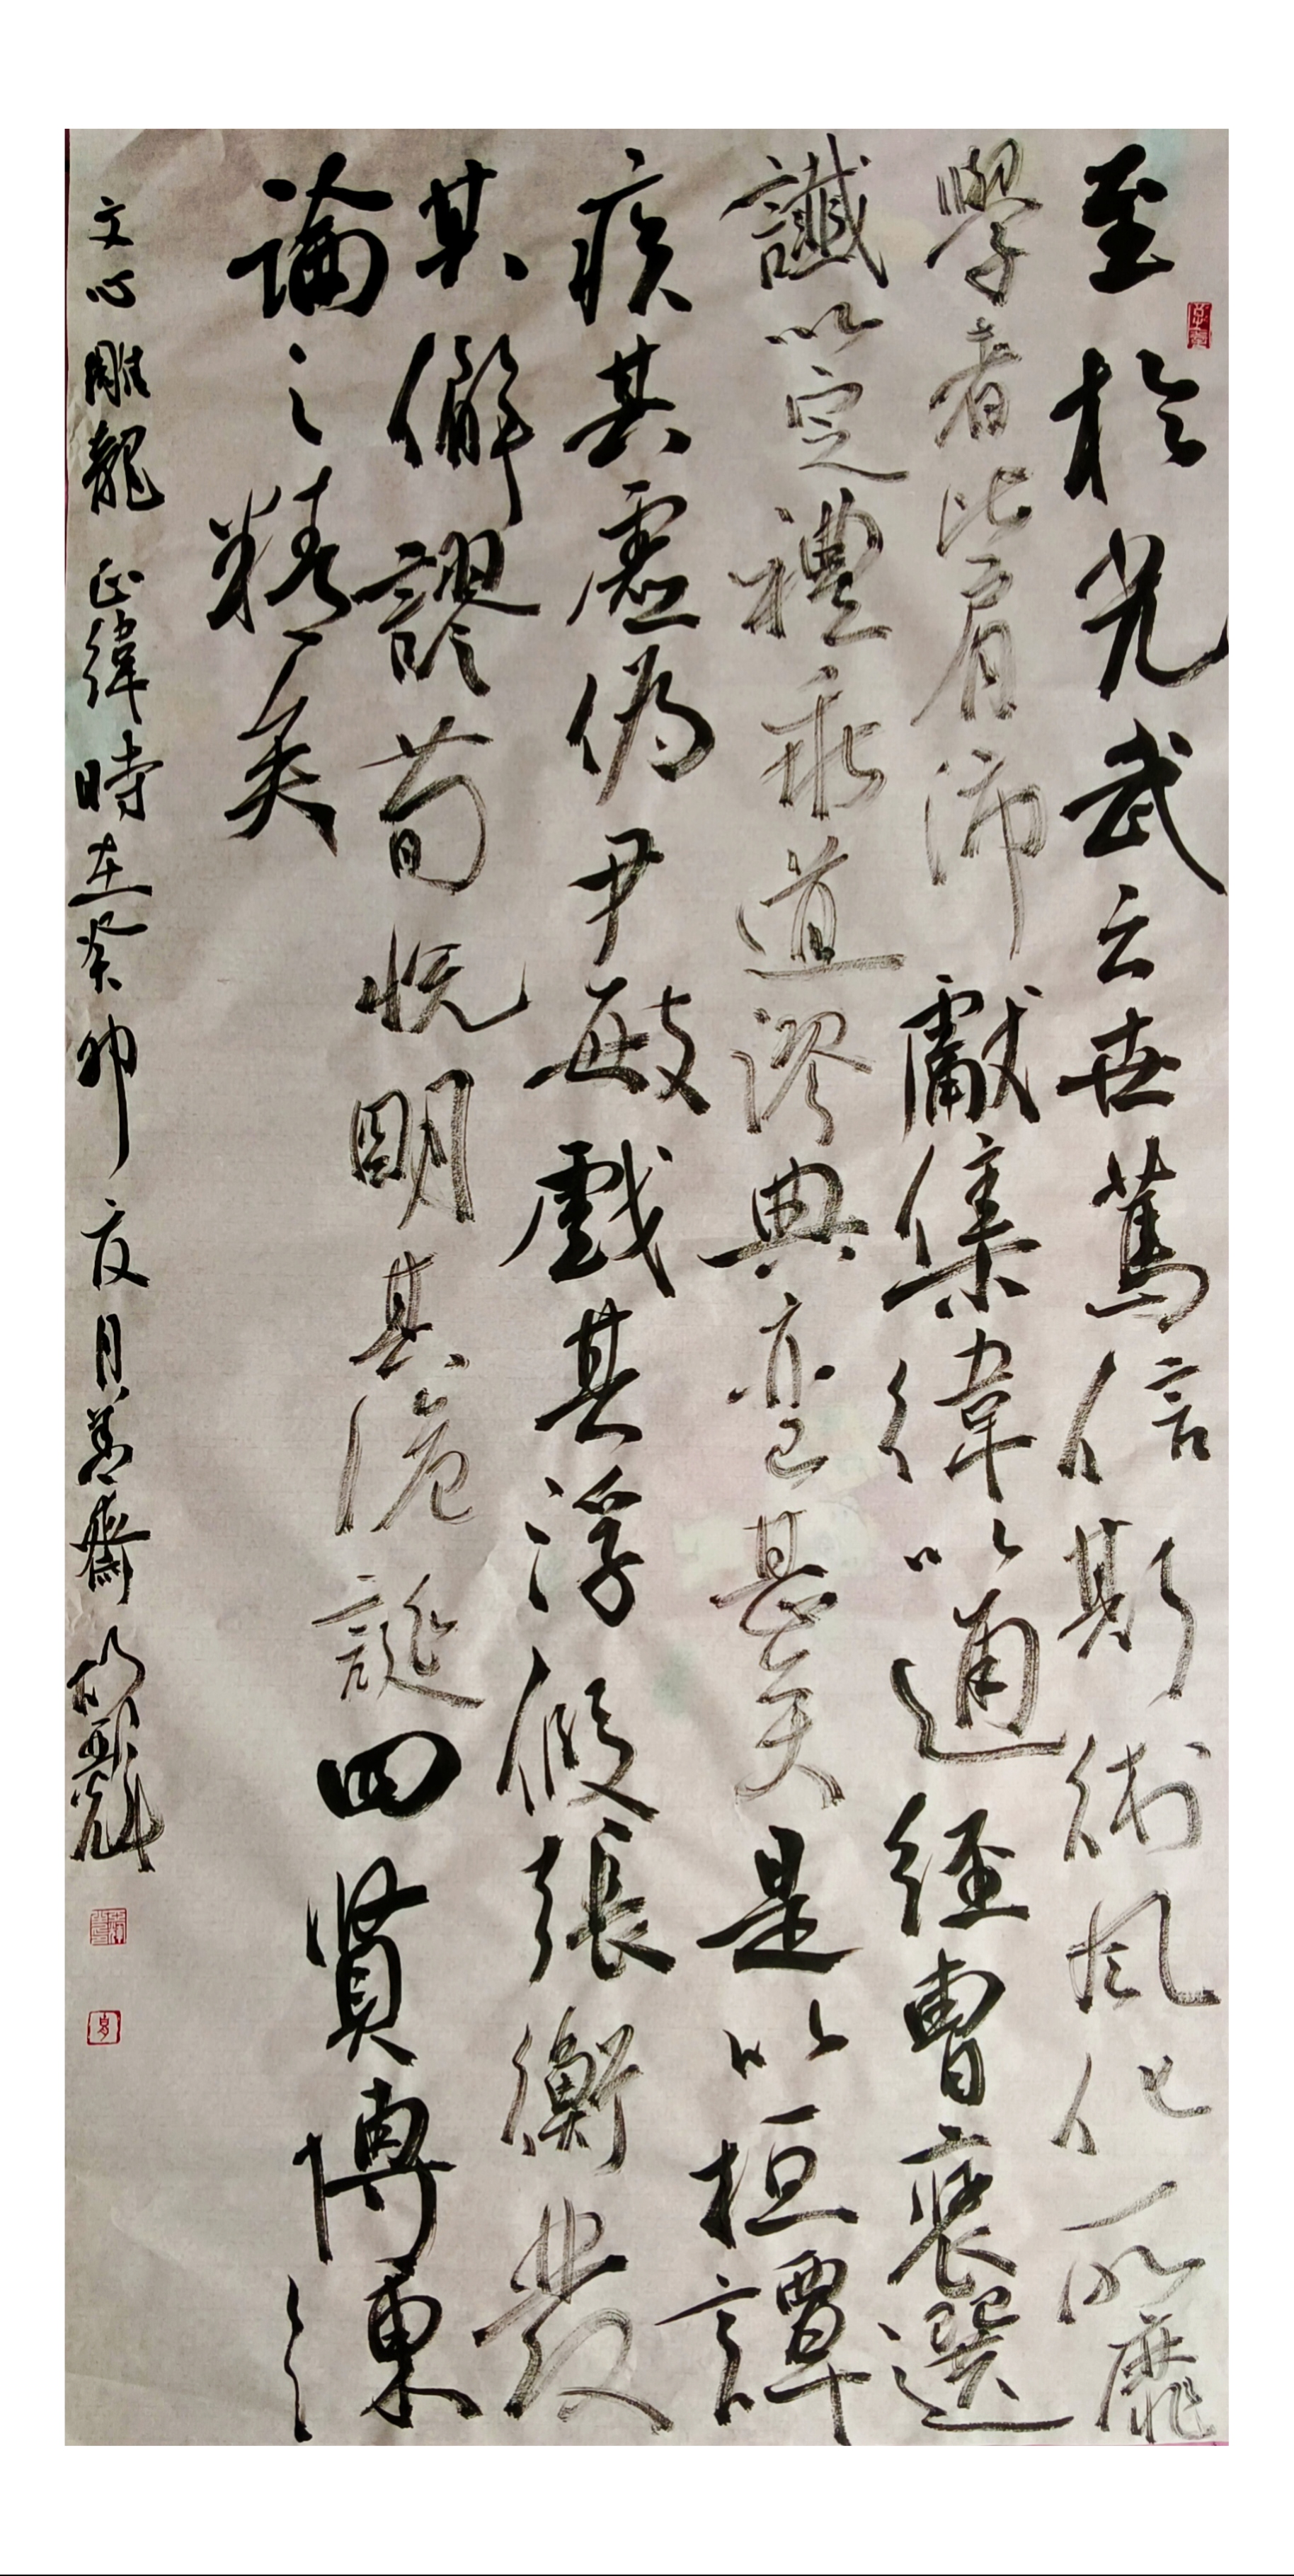 至於光武之世篤信斯術風化所靡
學者比肩沛獻集緯以通經曹褒選
讖以定禮乖道謬典亦已甚矣是以桓譚
疾其虛偽尹敏戲其浮假張衡發
其僻謬荀悅明其詭誕四賢博練
論之精矣
文心雕龍 正緯時在癸卯夏月善齋